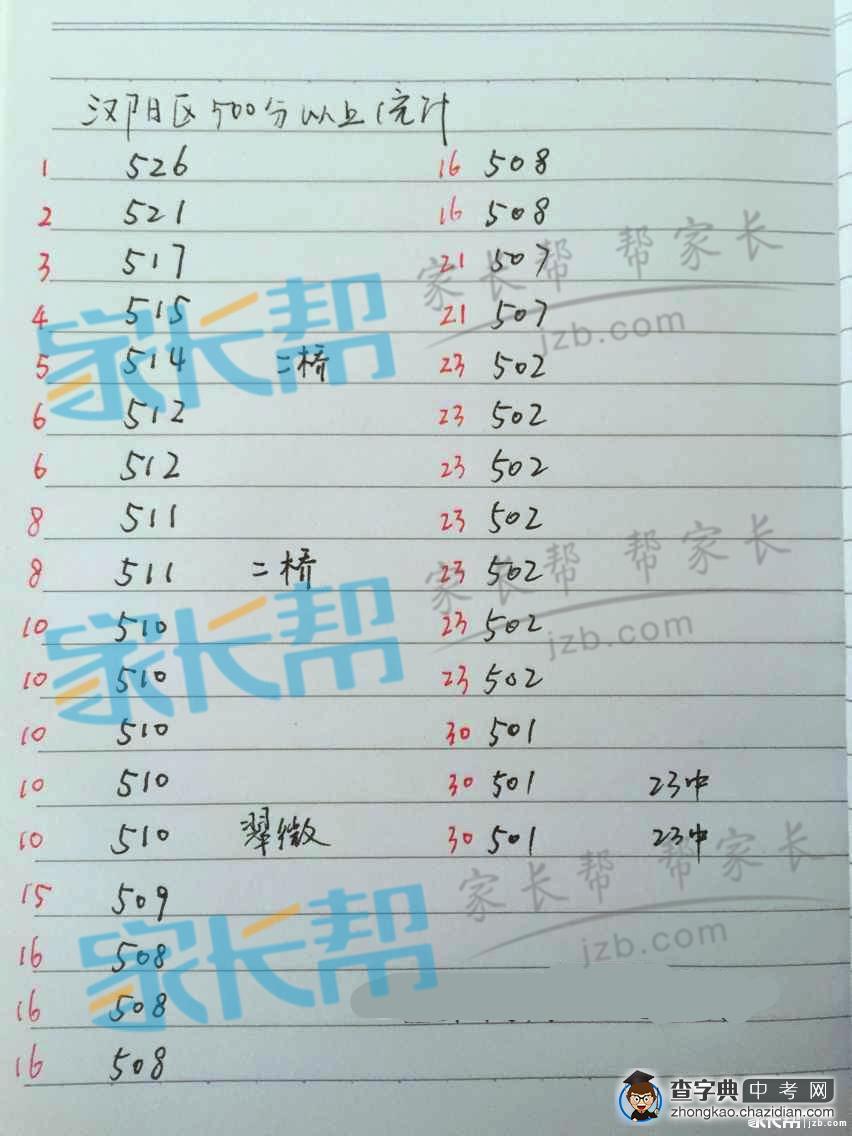 汉阳区500分以上统计
1 526
2 521
3 517
4 515
5 514 二桥
6 512
6 512
8 511
8 511 二桥
10 510
10 510
10 510
10 510
10 510 翠微
15 509
16 508
16 508
16 508
16 508
16 508
21 507
21 507
23 502
23 502
23 502
23 502
23 502
23 502
23 502
30 501
30 501 23中
30 501 23中
家长帮
家长帮 帮家长
jzb.com
家长帮
家长帮 帮家长
jzb.com
家长帮
家长帮 帮家长
jzb.com
查字典中考网
zhongkao.chazidian.com
家长帮|jzb.com